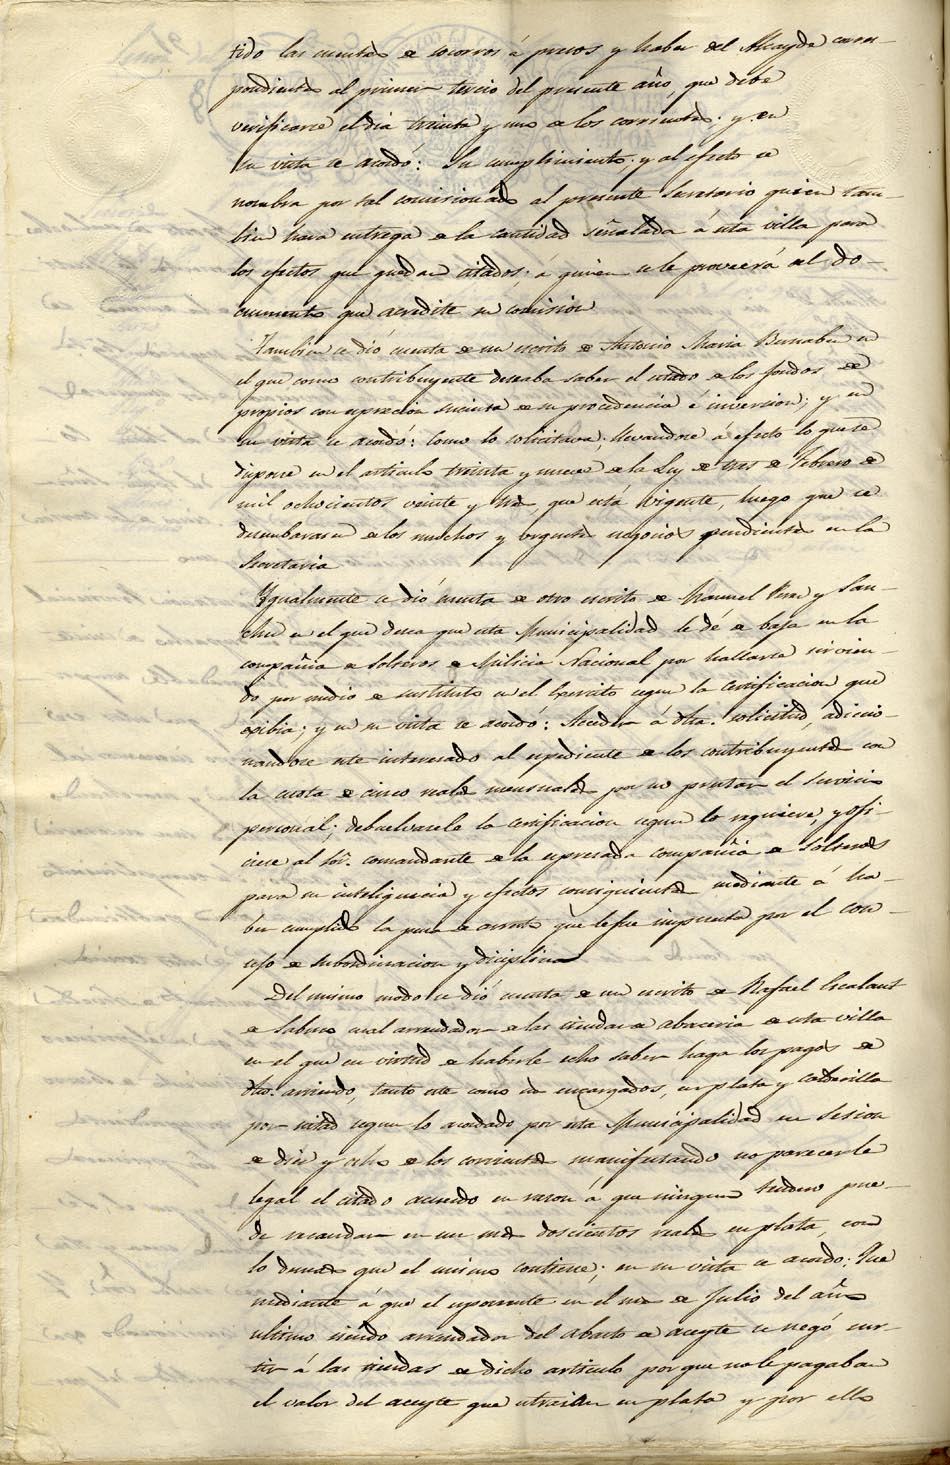 tido las cuentas de socorros á presos y haber del Alcayde corres-
pondientes al primer tercio del presente año, que debe
verificarse el dia treinta y uno de los corrientes; y en
su vista se acordó: Su cumplimiento; y al efecto se
nombra por tal comisionado al presente Secretario quien tam-
bien hara entrega de la cantidad señalada á esta villa para
los efectos que quedan citados; á quien se le proveerá del do-
cumento que acredite su comision
Tambien se dió cuenta de un escrito de Antonio Maria Bernabeu en
el que como contribuyente deseaba saber el estado de los fondos de
propios con espresion sucinta de su procedencia é inversion; y en
su vista se acordó: Como lo solicitava; llevandose á efecto lo que se
dispone en el articulo treinta y nueve de la Ley de tres de Febrero de
mil ochocientos veinte y tres que está vigente, luego que se
desembarasen de los muchos y urgentes negocios pendientes en la
Secretaria
Ygualmente se dió cuenta de otro escrito de Manuel y San-
ches en el que desea que esta Municipalidad le dé de baja en la
compañia de Solteros de Milicia Nacional por hallarse sirvien-
do por medio de sustituto en el Egercito segun la Certificacion que
exibia; y en su vista se acordó: Acceder á dha. solicitud, adicio-
nandose este interesado al espediente de los contribuyentes con
la cuota de cinco reales mensuales por no prestar el servicio
personal; debuelvasele la certificacion segun lo requiere, y ofi-
ciese al Sor. comandante de la espresada compañia de Solteros
para su inteligencia y efectos consiguientes mediante á ha-
ber cumplido la pena de arresto que le fue impuesta por el con-
sejo de subordinacion y diciplina
Del mismo modo se dió cuenta de un escrito de Rafael Escalant
de Sabino arrendador de las tiendas de abaceria de esta villa
en el que en virtud de haberle echo saber haga los pagos de
dho. arriendo, tanto este como sus encargados, en plata y calderilla
por mitad segun lo acordado por esta Municipalidad en sesion
de diez y ocho de los corrientes manifestando no parecerle
legal el citado acuerdo en razon á que ningun tendero pue-
de recaudar en un mes doscientos reales en plata, con
lo demas que el mismo contiene; en su vista se acordó: Que
mediante á que el esponente en el mes de Julio del año
ultimo siendo arrendador del abasto de aceyte se negó sur-
tir á las tiendas de dicho articulo por que no le pagaban
el valor del aceyte que estraian en plata y por ello